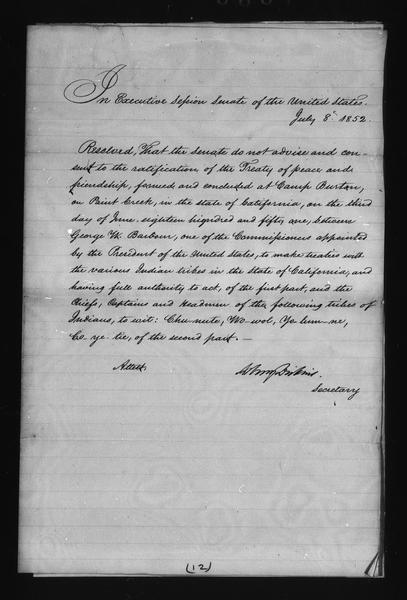 In Executive Session Senate of the United States.
July 8th 1852.
Resolved, That the Senate do not advise and con-
sent to the ratification of the Treaty of peace and
friendship, formed and concluded at Camp Burton,
on Paint Creek, in the state of California, on the third
day of June eighteen hundred and fifty one, between
George W. Barbour, one of the Commissioners appointed
by the President of the United States, to make treaties with
the various Indian tribes in the State of California, and
having full authority to act, of the first part, and the
Chiefs, Captains and Headmen of the following tribes of
Indians, to wit: Chu-nute, Wo-wol, Yo-lum-ne,
Co-ye-tie, of the second part. —
Attest
Asbury Dickins.
Secretary
(12)